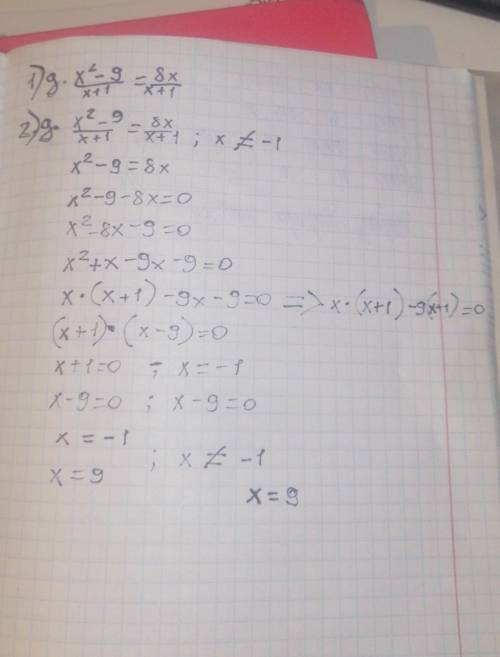 1) g. x² - 9 / x+1 = 8x / x+1
2) g. x² - 9 / x+1 = 8x / x+1 ; x ≠ -1
x² - 9 = 8x
x² - 9 - 8x = 0
x² - 8x - 9 = 0
x² + x - 9x - 9 = 0
x · (x+1) - 9x - 9 = 0 => x · (x+1) - 9(x+1) = 0
(x+1) · (x-9) = 0
x+1=0 ; x = -1
x-9=0 ; x-9=0
x = -1
x = 9 ; x ≠ -1
x = 9